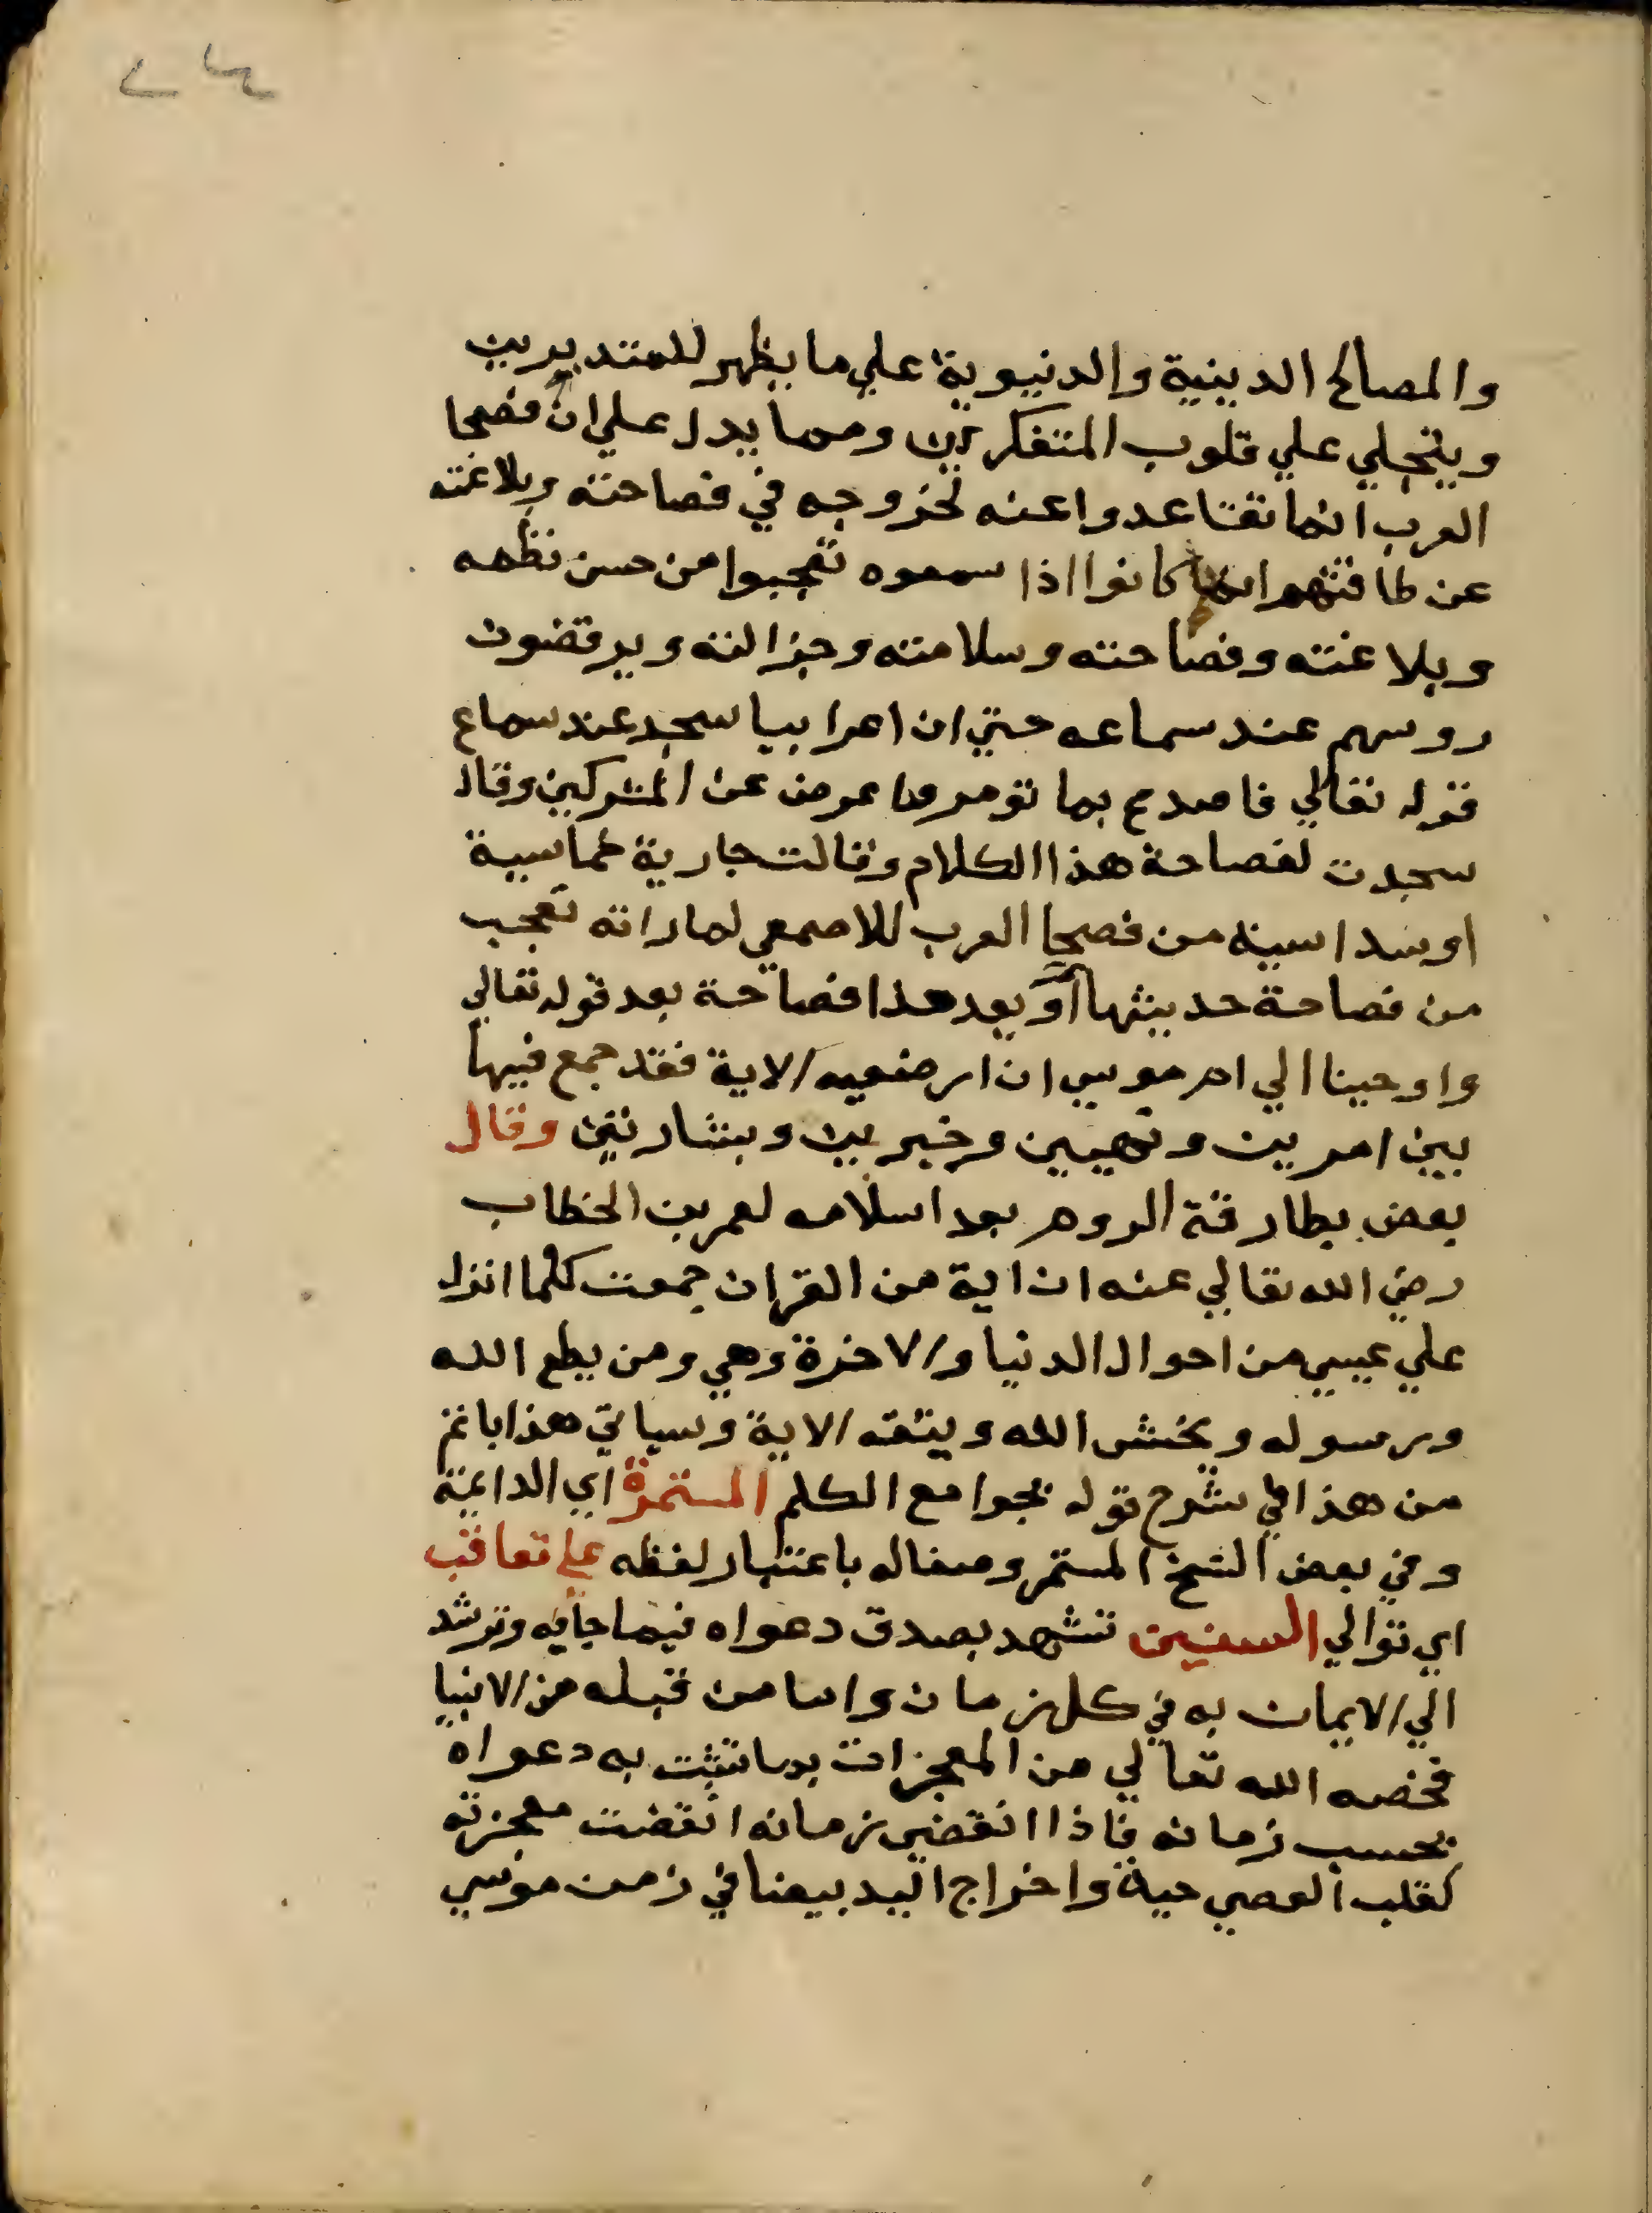 والمصالح الدينية والدنيوية علي ما يظهر للمتدبرين
ويتجلي علي قلوب المتفكرين ومما يدل علي ان فصحا
العرب انما تقاعدوا عنه لخروجه في فصاحته وبلاغته
عن طاقتهم انهم كانوا اذا سمعوه تعجبوا من حسن نظمه
وبلاغته وفصاحته وسلامته وجزالته ويرقضون
روسهم عند سماعه حتي ان اعرابيا سجد عند سماع
قوله تعالي فاصدع بما تومر واعرض عن المشركين وقال
سجدت لفصاحة هذا الكلام وقالت جارية خماسية
اوسداسية من فصحا العرب للاصمعي لما راته تعجب
من فصاحة حديثها او بعد هذا فصاحة بعد قوله تعالي
واوحينا الي ام موسي ان ارضعيه الاية فقد جمع فيها
بين امرين ونهيين وخبرين وبشارتين وقال
بعض بطارقة الروم بعد اسلامه لعمر بن الخطاب
رضي الله تعالي عنه ان اية من القران جمعت كلما انزل
علي عيسي من احوال الدنيا والاخرة وهي ومن يطع الله
ورسوله ويخش الله ويتقه الاية وسياتي هذا باتم
من هذا في شرح قوله بجوامع الكلم المستمرة اي الدائمة
وفي بعض النسخ المستمر وصفا له باعتبار لفظه علي تعاقب
اي توالي السنين تشهد بصدق دعواه فيما جا به وترشد
الي الايمان به في كل زمان واما من قبله من الانبيا
فخصه الله تعالي من المعجزات بما تثبت به دعواه
بحسب زمانه فاذا انقضي زمانه انقضت معجزته
كقلب العصي حية واخراج اليد بيضا في زمن موسي